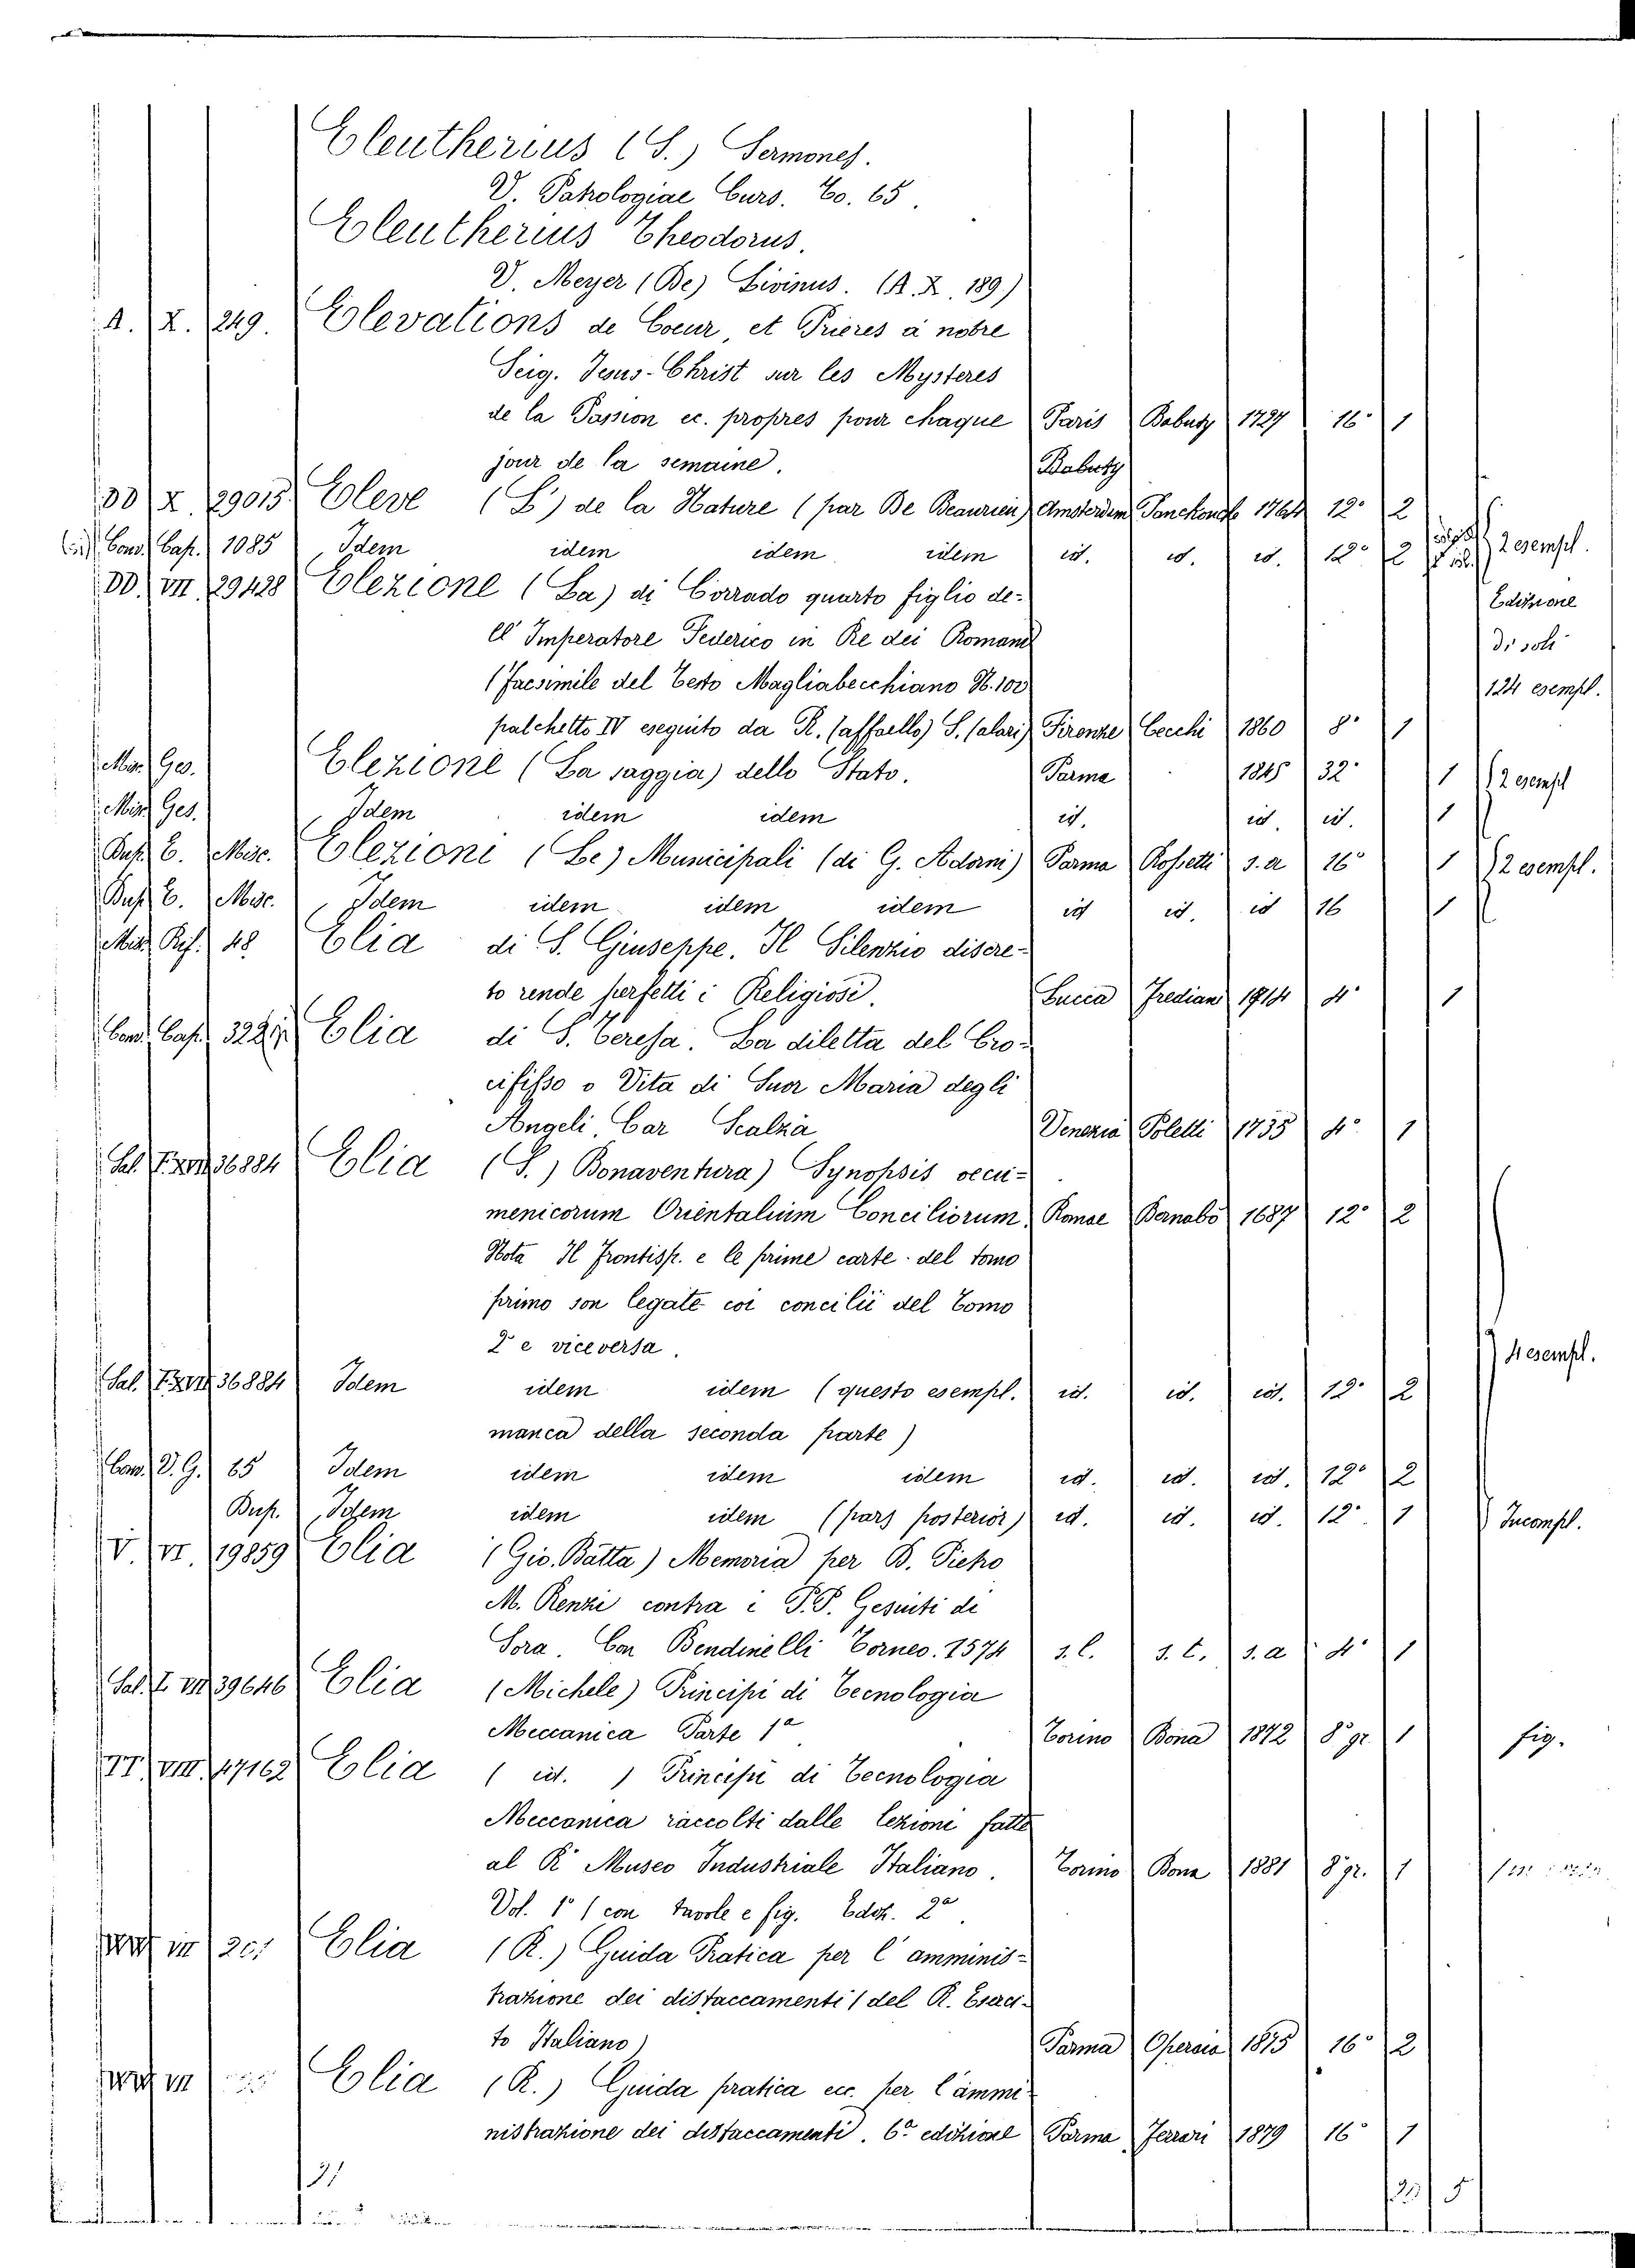 Eleutherius (S.) Sermones.
V. Patrologiae Curs. To. 65.
Eleutherius Theodorus.
V. Meyer (De) Livinus. (A. X. 189.)
A. X. 249. Elevations de Coeur, et Prieres à nôtre
Seig. Jesus-Christ sur les Mysteres
de la Passion ec. propres pour chaque Paris Babuty 1727 16° 1
jour de la semaine. Babuty
DD X 29015 Eleve (L') de la Nature (par De Beaurieu) Amsterdam Panckoucke 1764 12° 2
Cons. Cap. 1085 Idem idem idem idem id. id. id. 12° 2 2 esempl.
DD. VII 29428 Elezione (La) di Corrado quarto figlio de- Edizione
ll' Imperatore Federico in Re dei Romani di soli
(Facsimile del Testo Magliabecchiano N. 100 124 esempl.
palchetto IV eseguito da R. (affaello) S. (alari) Firenze Cecchi 1860 8° 1
Misc. Ges. Elezione (La saggia) dello Stato. Parma 1845 32° 1 2 esempl
Misc. Ges. Idem idem idem id. id. id. 1
Bup. C. Misc. Elezioni (Le) Municipali (di G. Adorni) Parma Rossetti s. a 16° 1 2 esempl.
Bup. C. Misc. Idem idem idem idem id id. id 16 1
Misc. Rif. 48 Elia di S. Giuseppe. Il Silenzio discre-
to rende perfetti i Religiosi. Lucca Frediani 1714 4° 1
Cons. Cap. Elia di S. Teresa. La diletta del Cro-
cifisso o Vita di Suor Maria degli
Angeli, Car Scalza Venezia Poletti 1735 4° 1
Sal. F. XVI 36884 Elia (S.) Bonaventura) Synopsis oecu-
menicorum Orientalium Conciliorum. Romae Bernabò 1687 12° 2
Nota Il Frontisp. e le prime carte del tomo
primo son legate coi concilii del Tomo
2° e viceversa. 4 esempl.
Sal. F. XVI 36884 Idem idem idem (questo esempl. id. id. id. 12° 2
manca della seconda parte)
Cons. V. G. 65 Idem idem idem idem id. id. id. 12° 2
Bup. Idem idem idem (pars posterior) id. id. id. 12° 1 Incompl.
V. VI. 19859 Elia (Gio. Batta) Memoria per B. Pietro
M. Renzi contra i P.P. Gesuiti di
Sora. Con Bendinelli Corneo. 1574 s. l. s. t. s. a 4° 1
Sal. F. VII 39646 Elia (Michele) Principi di Tecnologia
Meccanica Parte 1a Torino Bona 1872 8° gr. 1 fig.
TT. VIII. 47162 Elia ( id. ) Principi di Tecnologia
Meccanica raccolti dalle lezioni fatte
al R. Museo Industriale Italiano. Torino Bona 1881 8° gr. 1
Vol. 1° (con tavole e fig. Ediz. 2a.
VII 201 Elia (R.) Guida Pratica per l'amminis-
trazione dei distaccamenti (del R. Eserci-
to Italiano) Parma Operaia 1875 16° 2
VII Elia (R.) Guida pratica ecc. per l'ammi-
nistrazione dei distaccamenti. 6a edizione Parma Ferrari 1879 16° 1
21 5